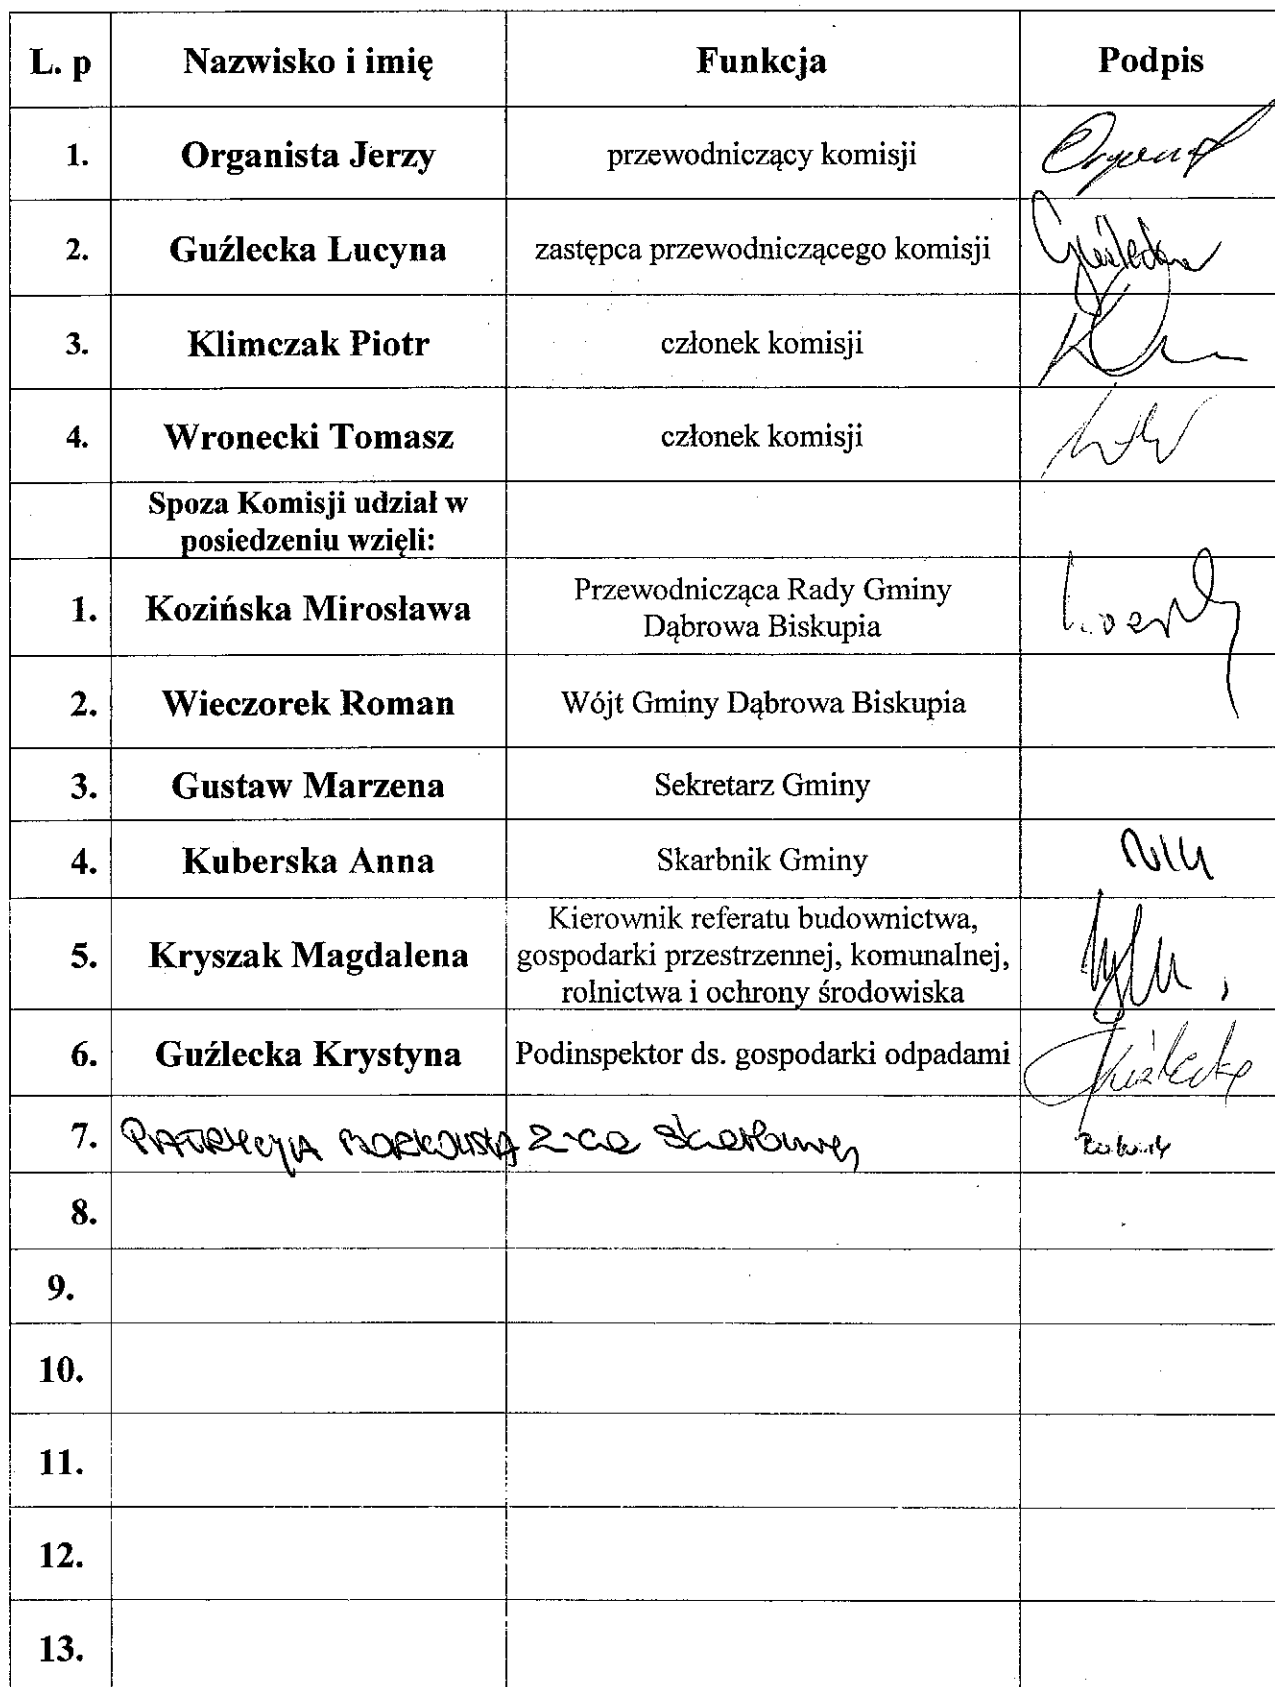 L. p Nazwisko i imię Funkcja Podpis
1. Organista Jerzy przewodniczący komisji
2. Guźlecka Lucyna zastępca przewodniczącego komisji Guźlecka
3. Klimczak Piotr członek komisji
4. Wronecki Tomasz członek komisji
Spoza Komisji udział w
posiedzeniu wzięli:
1. Kozińska Mirosława Przewodnicząca Rady Gminy
Dąbrowa Biskupia
2. Wieczorek Roman Wójt Gminy Dąbrowa Biskupia
3. Gustaw Marzena Sekretarz Gminy
4. Kuberska Anna Skarbnik Gminy
5. Kryszak Magdalena Kierownik referatu budownictwa,
gospodarki przestrzennej, komunalnej,
rolnictwa i ochrony środowiska
6. Guźlecka Krystyna Podinspektor ds. gospodarki odpadami Guźlecka
7. PATRYCJA BORKOWSKA z-ca
8.
9.
10.
11.
12.
13.